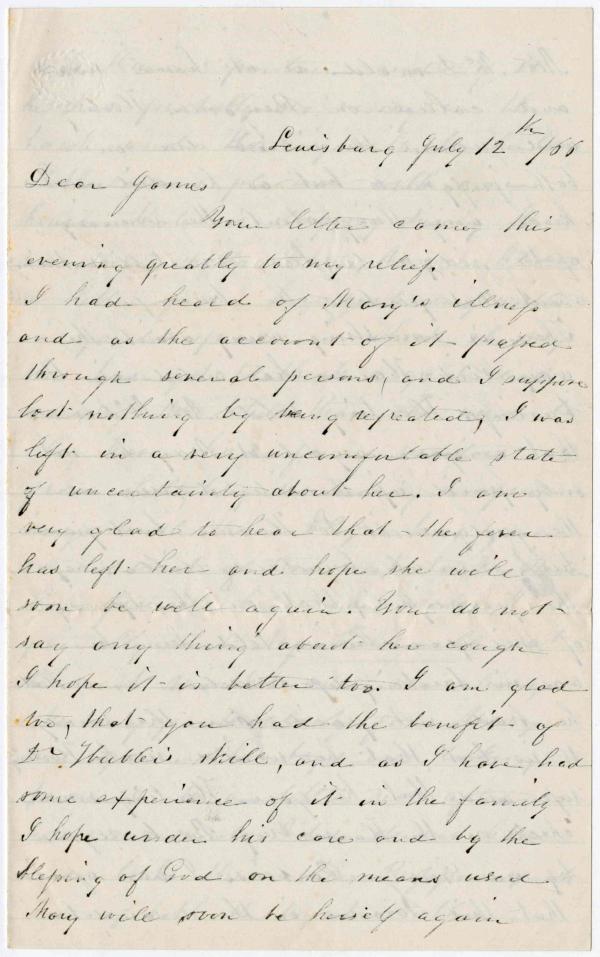 Lewisburg July 12th /66
Dear James
Your letter came this
evening greatly to my relief.
I had heard of Mary's illness
and as the account of it passed
through several persons, and I suppose
lost nothing by being repeated, I was
left in a very uncomfortable state
of uncertainty about her. I am
very glad to hear that the fever
has left her and hope she will
soon be well again. You do not
say any thing about her cough
I hope it is better too. I am glad
too, that you had the benefit of
Dr skill, and as I have had
some experience of it in the family
I hope under his care and by the
blessing of God on the means used
Mary will soon be herself again